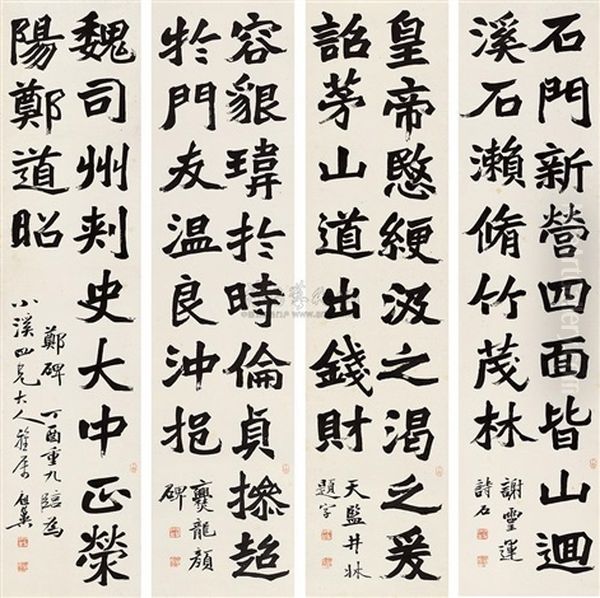 石門新營四面皆山迴
溪石瀨脩竹茂林
謝靈運
詩石
皇帝愍綆汲之渴之爰
詔茅山道出錢財
天監井牀
題字
容貌瑋於時倫貞操超
於門友溫良沖挹
爨龍顏
碑
魏司州刺史大中正滎
陽鄭道昭
鄭碑 丁酉重九臨為
小溪四兄大人雅屬